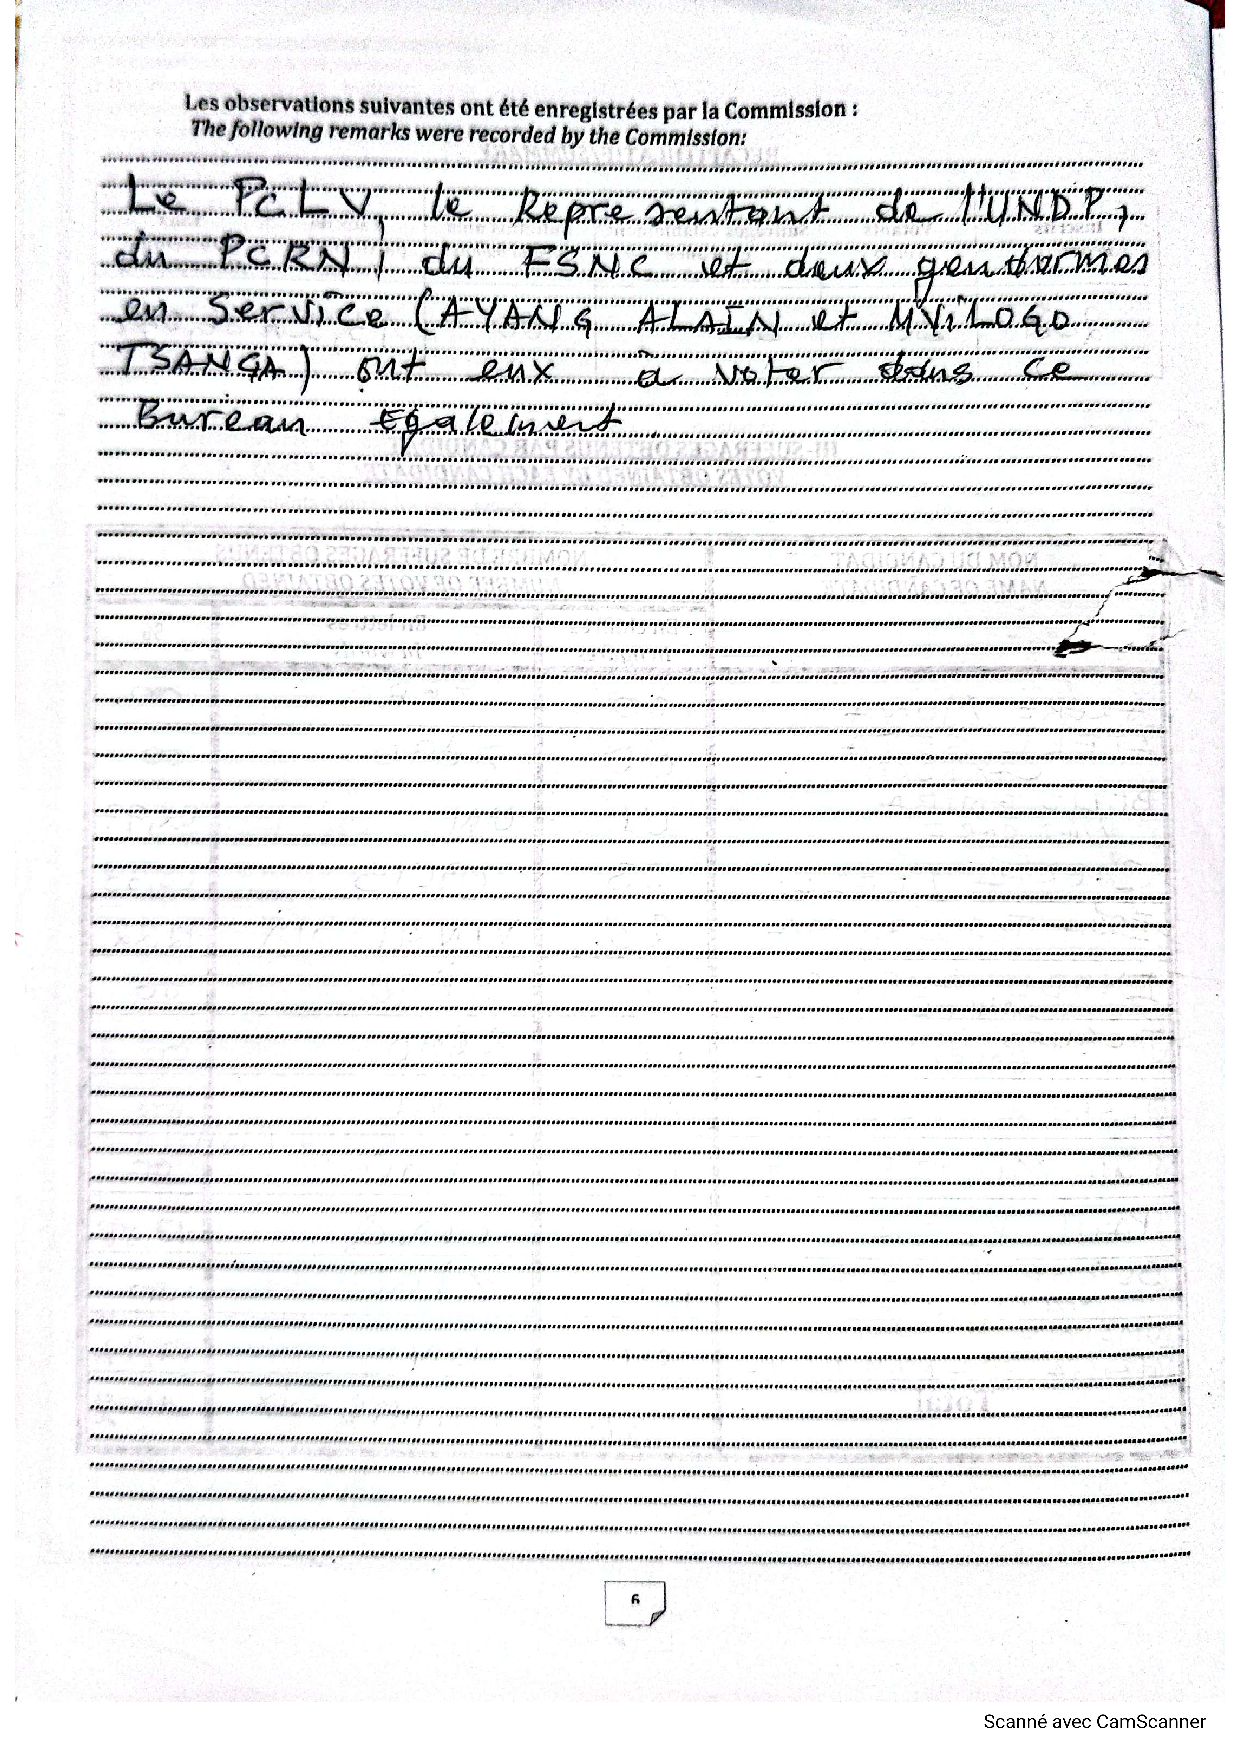 Les observations suivantes ont été enregistrées par la Commission :
The following remarks were recorded by the Commission:
Le PCLV, le Representant de l'UNDP,
du PCRN, du FSNC et deux gendarmes
en Service (AYANG ALAIN et MViLOGO
TSANGA) ont eux à voter dans ce
Bureau également
6
Scanné avec CamScanner